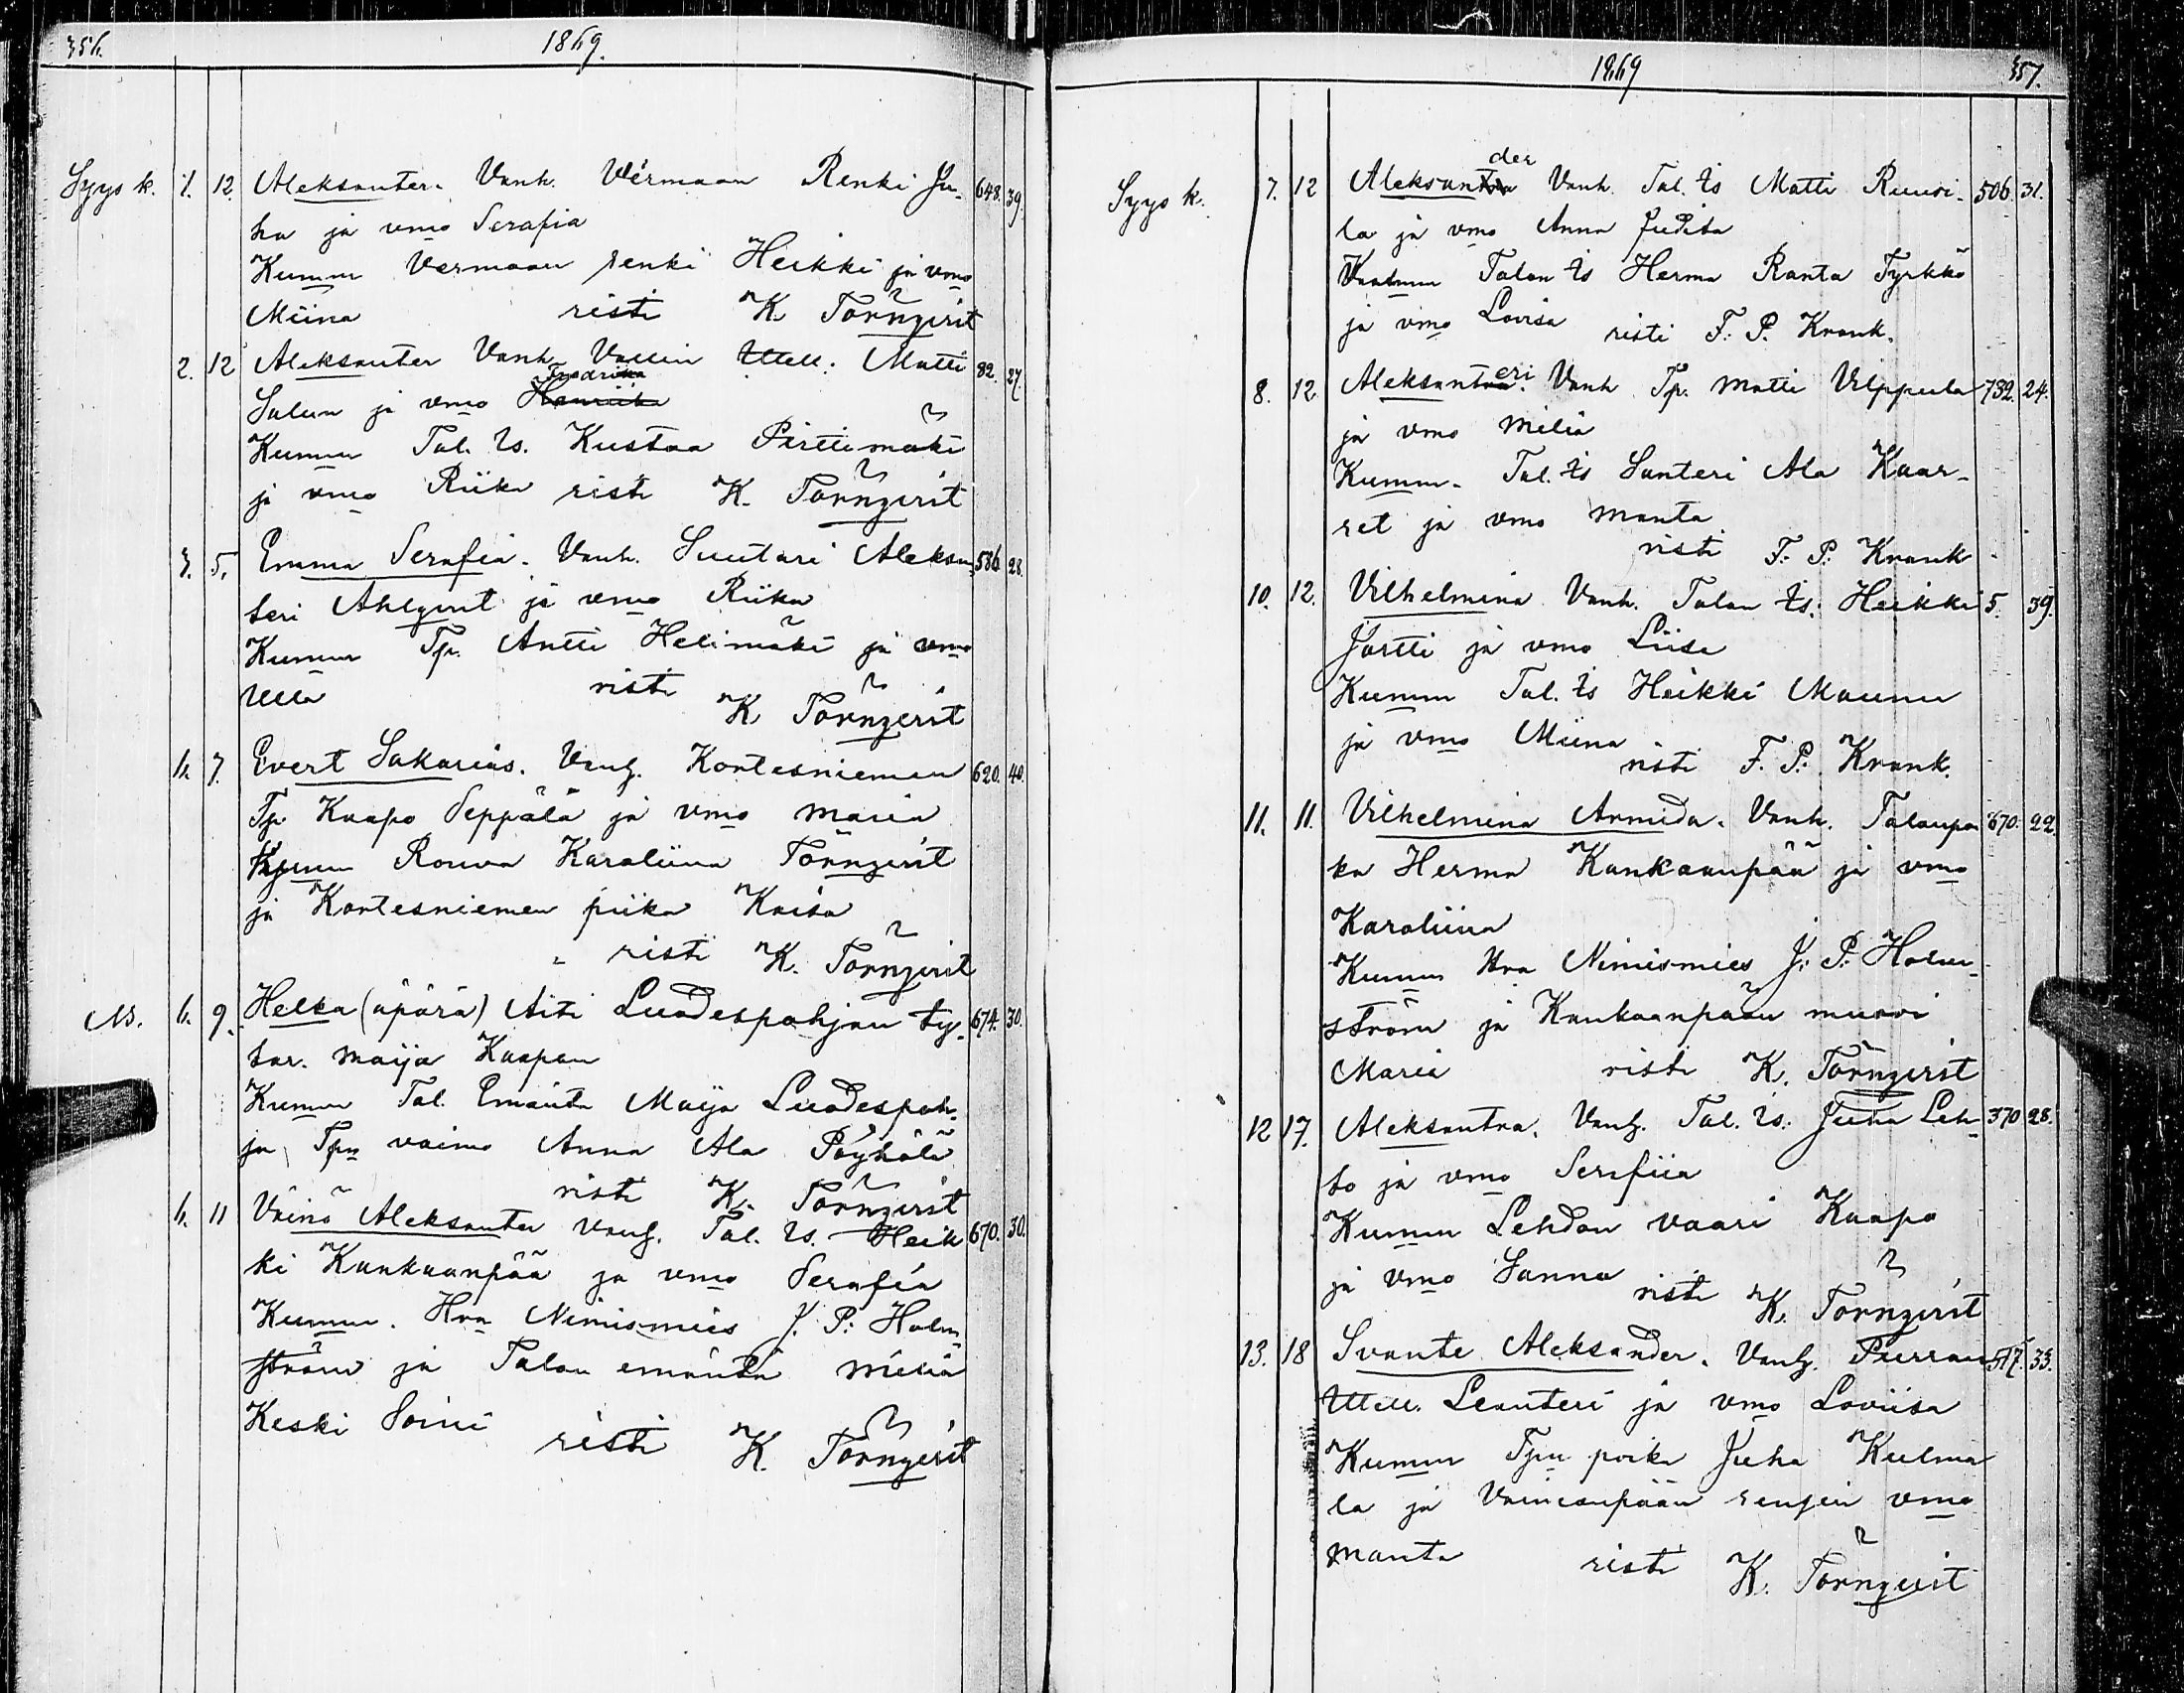 356.
1869.
Syys k. 1. 12. Aleksanter. Vanh. Vermaan Renki Ju- 648. 39.
ha ja vmo Serafia
Kumm Vermaan renki Heikki ja vmo
Miina risti K. Törnqvist
2. 12 Aleksanter Vanh. Vallin Matti 82. 27.
Fredrika
Salun ja vmo Henriika
Kumm Tal. Is. Kustaa Pirttimäki
ja vmo Riika risti K. Törnqvist
3. 5. Emma Serafia. Vanh. Suutari Aleksan- 586. 28.
teri Ahlqvist ja vmo Riika
Kumm Tp. Antti Helimäki ja vmo
Ulla risti K Törnqvist
4. 7. Evert Sakarias. Vanh. Kortesniemen 620. 40.
Tp. Kaapo Seppälä ja vmo Maria
Kumm Rouva Karoliina Törnqvist
ja Kortesniemen piika Kaisa
risti K. Törnqvist
6. 9. Helka (äpärä) Äiti Luodespohjan ty- 674. 30.
tar. Maija Kaapon
Kumm Tal. Emäntä Maija Luodespoh-
ja Tpn vaimo Anna Ala Pöyhölä
risti K. Törnqvist
6. 11 Väinö Aleksanter Vanh. Tal. Is. Heik 670. 30.
ki Kankaanpää ja vmo Serafia
Kumm. Hra Nimismies J. P. Holm-
ström ja Talon emäntä Milia
Keski Soini risti K. Törnqvist
1869
357.
der
Syys k. 7. 12 Aleksantra Vanh. Tal. Is Matti Ruusi- 506. 31.
la ja vmo Anna Judita
Kumm Talon Is Herma Ranta Tyrkkö
ja vmo Lovisa risti F. P. Krank.
eri
8. 12. Aleksantra. Vanh Tp. Matti Vilppula 732. 24.
ja vmo Milia
Kumm. Tal. Is Santeri Ala Kaar-
ret ja vmo Manta
risti F. P. Krank
10. 12. Vilhelmina Vanh. Talon Is. Heikki 5. 39.
Jartti ja vmo Liisa
Kumm Tal. Is Heikki Maunu
ja vmo Miina
risti F. P. Krank.
11. 11. Vilhelmina Armida. Vanh. Talonpoi 670. 22
ka Herma Kankaanpää ja vmo
Karoliina
Kumm Hra Nimismies J. P. Holm-
ström ja Kankaanpään muori
Maria risti K. Törnqvist
12 17. Aleksantra. Vanh. Tal. Is. Juha Leh- 370 28.
to ja vmo Serafiia
Kumm Lehdon vaari Kaapo
ja vmo Sanna risti K. Törnqvist
13. 18 Svante Aleksander. Vanh. Purran 517. 33.
Leanteri ja vmo Loviisa
Kumm Tpn poika Juha Kulma
la ja Vainionpään rengin vmo
Manta risti K. Törnqvist